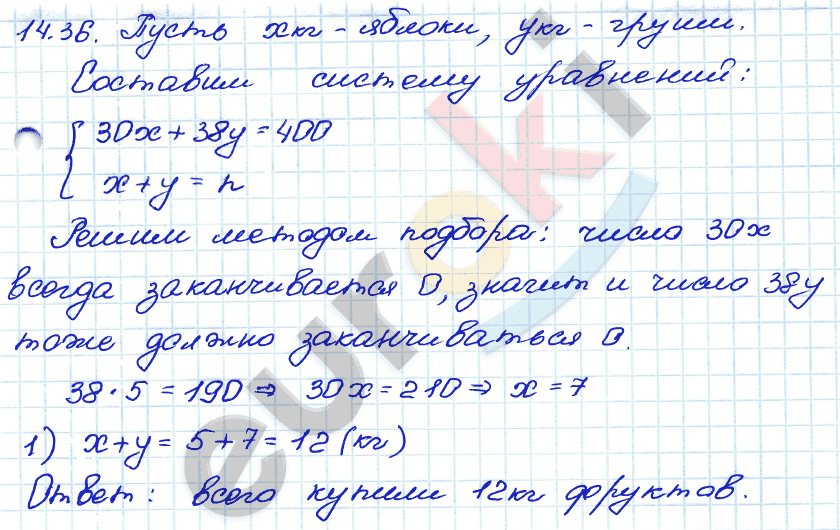 14.36. Пусть x кг - яблоки, y кг - груши.
Составим систему уравнений:
{ 30x + 38y = 400
x + y = n
Решим методом подбора: число 30x
всегда заканчивается 0, значит и число 38y
тоже должно заканчиваться 0.
38 · 5 = 190 ⇒ 30x = 210 ⇒ x = 7
1) x + y = 5 + 7 = 12 (кг)
Ответ: всего купили 12 кг фруктав.
euroki